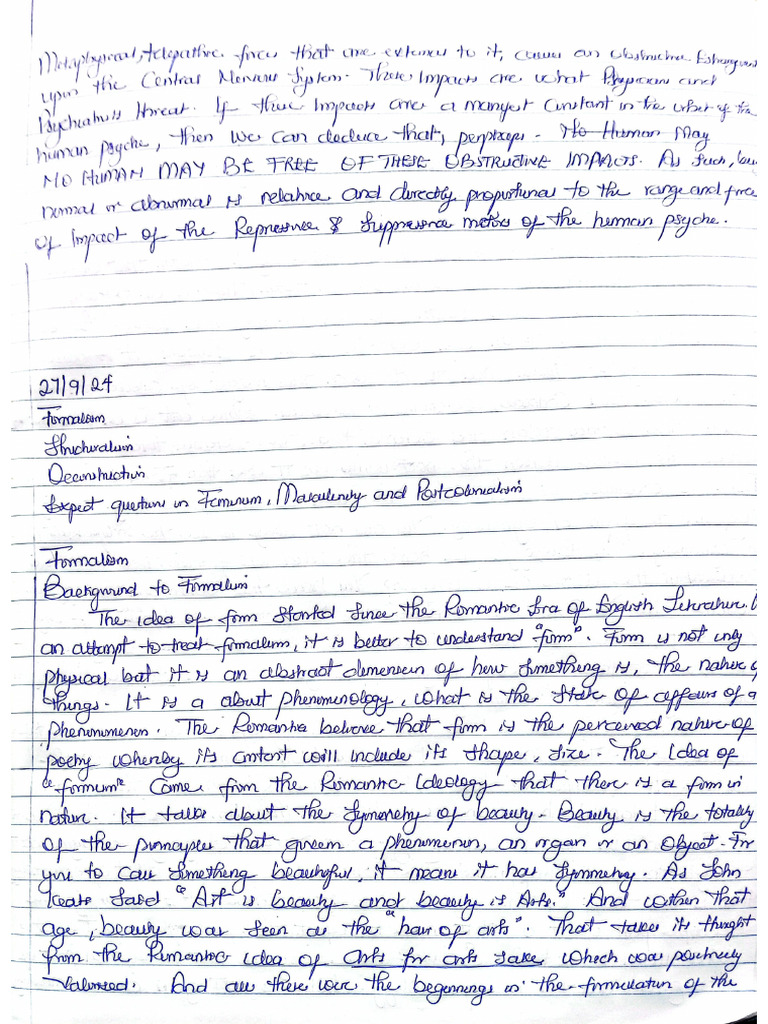 Metaphysical, telepathic forces that are external to it, causes an obstructive
upon the Central Nervous System. These Impacts are what Physicians and
Psychiatrists threat. If these Impacts are a manifest Constant in the of the
human psyche, then we can deduce that, perphaps - No Human May
NO HUMAN MAY BE FREE OF THESE OBSTRUCTIVE IMPACTS. As Such,
normal or abnormal is relative and directly proportional to the range and force
of Impact of the Repressive & Suppressive metres of the human psyche.
27/9/24
Formalism
Structuralism
Deconstruction
Expect questions in Feminism, Masculinity and Postcolonialism
Formalism
Background to Formalism
The idea of form Started Since the Romantic Era of English Literature.
an attempt to treat formalism, it is better to understand "form". Form is not only
physical but it is an abstract dimension of how Something is, the nature of
things. It is a about phenomenology, what is the State of affairs of a
phenomenon. The Romantics believe that form is the perceived nature of
poetry whereby its content will include its Shape, Size. The Idea of
"formum" Came from the Romantic Ideology that there is a form in
nature. It talks about the Symmetry of beauty. Beauty is the totality
of the principles that govern a phenomenon, an organ or an Object. For
you to Call Something beautiful, it means it has Symmetry. As John
Keats Said "Art is beauty and beauty is Arts." And within that
age, beauty was Seen as the of arts". That takes its thought
from the Romantic idea of arts for arts Sake which was positively
Valorised. And all these were the beginnings in the formulation of the